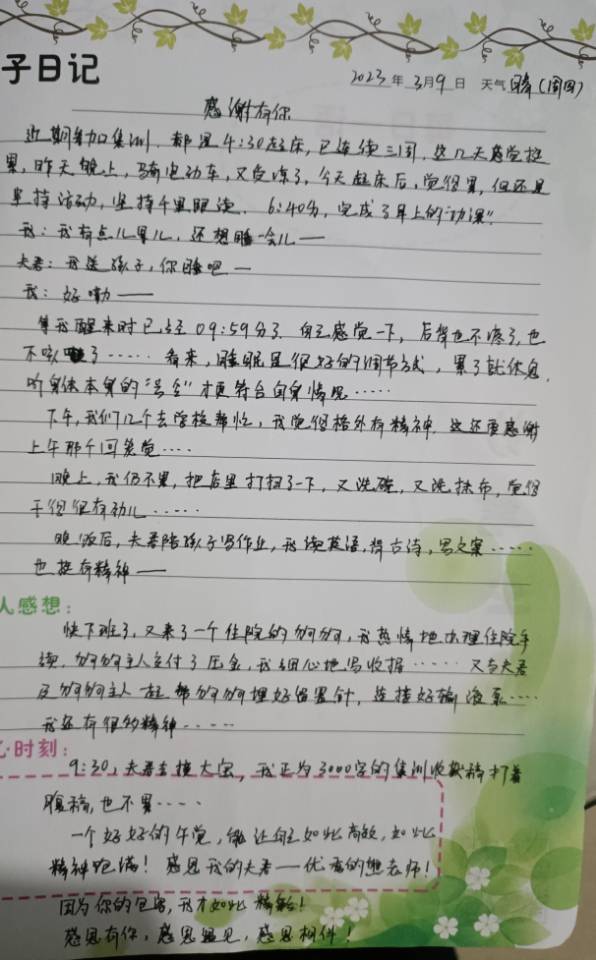 子日记
2023年3月9日 天气晴(周四)
感谢有你
近期参加集训,都是4:30起床,已连续三周,这几天感觉挺
累,昨天晚上,骑电动车,又受凉了,今天起床后,觉得累,但还是
坚持活动,坚持千里眼泡. 6:40分,完成了早上的"功课".
我:我有点儿累儿,还想睡一会儿——
夫君:我送孩子,你睡吧——
我:好嘞——
等我醒来时已经09:59分了.自己感觉一下,后背也不疼了,也
不咳嗽了……看来,睡眠是很好的调节方式,累了就休息,
听身体本身的"号令"才更符合自身情况……
下午,我们几个去学校帮忙,我觉得格外有精神.这还要感谢
上午那个回笼觉……
晚上,我仍不累,把店里打扫了一下,又洗碗,又洗抹布,觉得
干得很有劲儿……
晚饭后,夫君陪孩子写作业,我读英语,背古诗,写文案……
也挺有精神——
人感想:
快下班了,又来了一个住院的狗狗,我热情地办理住院手
续.狗狗主人交付了压金,我细心地写收据……又与夫君
及狗狗主人一起帮狗狗埋好留置针,连接好输液泵……
我还有很的精神……
心时刻:
9:30,夫君去接大宝,我正为3000字的集训收获稿打着
腹稿,也不累……
一个好好的午觉,能让自己如此高效,如此
精神饱满!感恩我的夫君——优秀的熊老师!
因为你的包容,我才如此精彩!
感恩有你,感恩遇见,感恩相伴!